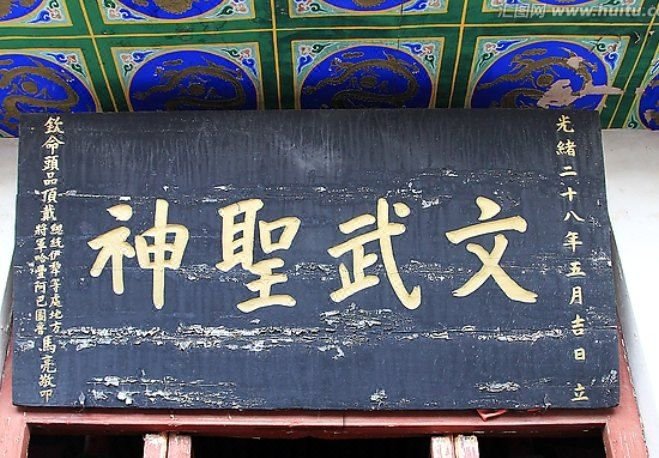 光緒二十八年五月吉日立
文武聖神
欽命頭品頂戴
總統伊犂等處地方
將軍哈豐阿巴圖魯
馬亮敬叩
汇图网 www.huitu.c